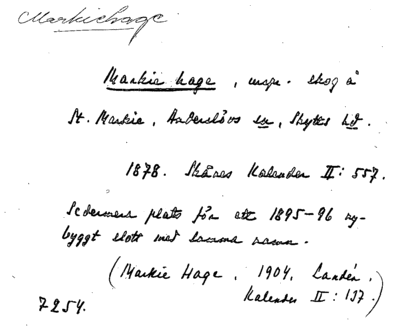 Markiehage
Markie hage, urspr. skog å
St. Markie, Anderslövs sn, Skytts hd.
1878. Skånes Kalender II: 557.
Sedermera plats för ett 1895-96 ny-
byggt slott med samma namn.
(Markie Hage, 1904, Landén,
Kalender II: 137.)
7254.